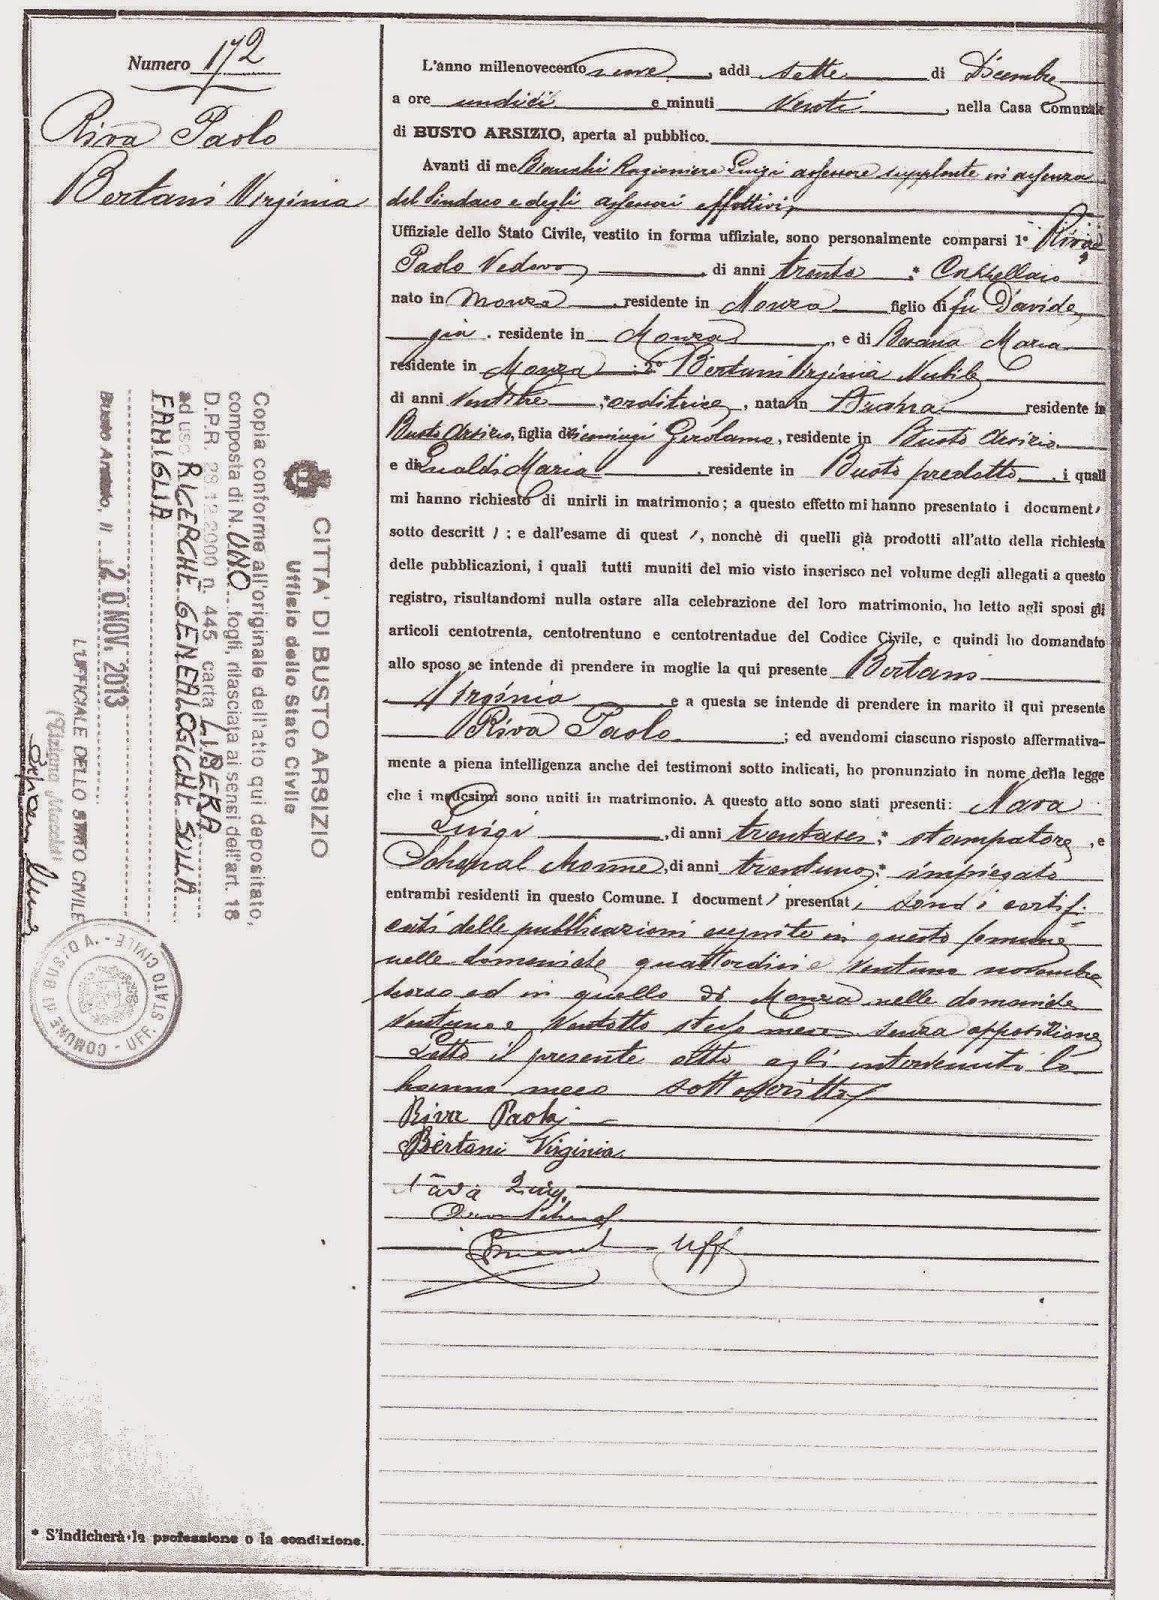 Numero 172
Riva Paolo
Bertani Virginia
L'anno millenovecento nove, addì sette di Dicembre
a ore undici e minuti Venti, nella Casa Comunale
di BUSTO ARSIZIO, aperta al pubblico.
Avanti di me Bianchi Ragioniere Luigi assessore supplente in assenza
del Sindaco e degli assessori effettivi
Uffiziale dello Stato Civile, vestito in forma uffiziale, sono personalmente comparsi 1º Riva
Paolo Vedovo, di anni trenta * Cappellaio
nato in Monza, residente in Monza figlio di fu Davide,
già residente in Monza, e di Maria
residente in Monza; 2º Bertani Virginia Nubile
di anni Ventitre, * orditrice, nata in residente in
Busto Arsizio, figlia di Gerolamo, residente in Busto Arsizio
e di Gualdi Maria, residente in Busto predetto, i quali
mi hanno richiesto di unirli in matrimonio; a questo effetto mi hanno presentato i documenti
sotto descritti; e dall'esame di questi, nonchè di quelli già prodotti all'atto della richiesta
delle pubblicazioni, i quali tutti muniti del mio visto inserisco nel volume degli allegati a questo
registro, risultandomi nulla ostare alla celebrazione del loro matrimonio, ho letto agli sposi gli
articoli centotrenta, centotrentuno e centotrentadue del Codice Civile, e quindi ho domandato
allo sposo se intende di prendere in moglie la qui presente Bertani
Virginia e a questa se intende di prendere in marito il qui presente
Riva Paolo; ed avendomi ciascuno risposto affermativa-
mente a piena intelligenza anche dei testimoni sotto indicati, ho pronunziato in nome della legge
che i medesimi sono uniti in matrimonio. A questo atto sono stati presenti: Nava
Luigi, di anni trentasei * stampatore, e
di anni trentuno * impiegato
entrambi residenti in questo Comune. I documenti presentati sono i certifi-
cati delle pubblicazioni eseguite in questo Comune
nelle domeniche quattordici e Ventuno novembre
scorso ed in quello di Monza nelle domeniche
Ventuno e Ventotto stesso mese senza opposizione
Letto il presente atto agli intervenuti lo
hanno meco sottoscritto
Riva Paolo
Bertani Virginia
Nava Luigi
Uff
CITTA' DI BUSTO ARSIZIO
Ufficio dello Stato Civile
Copia conforme all'originale dell'atto qui depositato,
composta di N. UNO fogli, rilasciata ai sensi dell'art. 18
D.P.R. 28.12.2000 n. 445 carta LIBERA
ad uso RICERCHE GENEALOGICHE SULLA
FAMIGLIA
Busto Arsizio, li 20 NOV. 2013
L'UFFICIALE DELLO STATO CIVILE
COMUNE di BUSTO A. - UFF. STATO CIVILE
* S'indicherà la professione o la condizione.